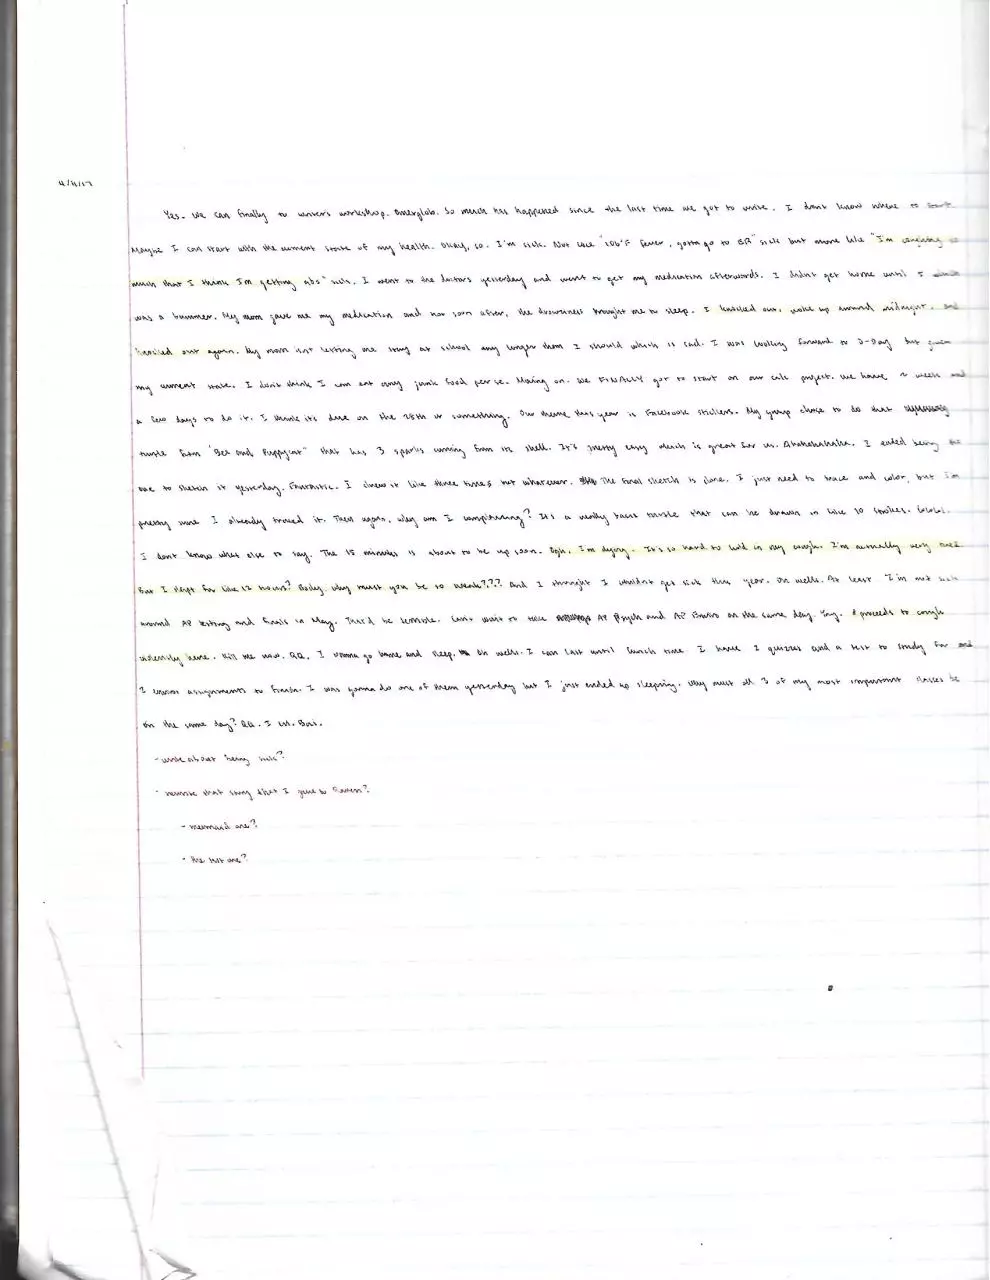 4/11/17
Yes. We can finally do writer's workshop. So much has happened since the last time we got to write. I don't know where to start.
Maybe I can start with the current state of my health. Okay, so. I'm sick. Not like "106°F fever, gotta go to ER" sick but more like "I'm coughing so
much that I think I'm getting abs" sick. I went to the doctors yesterday and went to get my medication afterwards. I didn't get home until
was a bummer. My mom gave me my medication and not soon after, the drowsiness brought me to sleep. I knocked out, woke up around midnight, and
knocked out again. My mom isn't letting me stay at school any longer than I should which is sad. I was looking forward to D-Day but given
my current state, I don't think I can eat any junk food per se. Moving on. We FINALLY got to start on our calc project. We have 2 weeks and
a few days to do it. I think it's due on the 28th or something. Our theme this year is Facebook stickers. My group chose to do that
turtle from "Bee and Puppycat" that has 3 sparks coming from its shell. It's pretty easy which is great for us. Ahahahahaha. I ended being the
one to sketch it yesterday. Fantastic. I drew it like three times but whatever. The final sketch is done. I just need to trace and color, but I'm
pretty sure I already traced it. Then again, why am I complaining? It's a really basic turtle that can be drawn in like 10 strokes. Lololol.
I don't know what else to say. The 15 minutes is about to be up soon. Ugh, I'm dying. It's so hard to hold in my cough. I'm actually very tired
but I slept for like 12 hours? Body, why must you be so weak??? And I thought I wouldn't get sick this year. Oh wells. At least I'm not sick
around AP testing and finals in May. That'd be terrible. Can't wait to take AP Psych and AP Enviro on the same day. Yay. *proceeds to cough
violently here. Kill me now. QQ. I wanna go home and sleep. Oh wells. I can last until lunch time. I have 2 quizzes and a test to study for and
2 assignments to finish. I was gonna do one of them yesterday but I just ended up sleeping. Why must all 3 of my most important classes be
on the same day? QQ. I cri. Boii.
- write about being sick?
- rewrite that story that I gave to
- mermaid one?
- the test one?